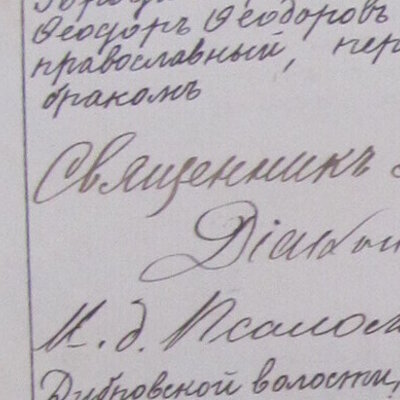 Ѳеодоръ Ѳеодоровъ
православный, пер
бракомъ
Священникъ
Діакон
И. д. Псалом
Дубровской волости,